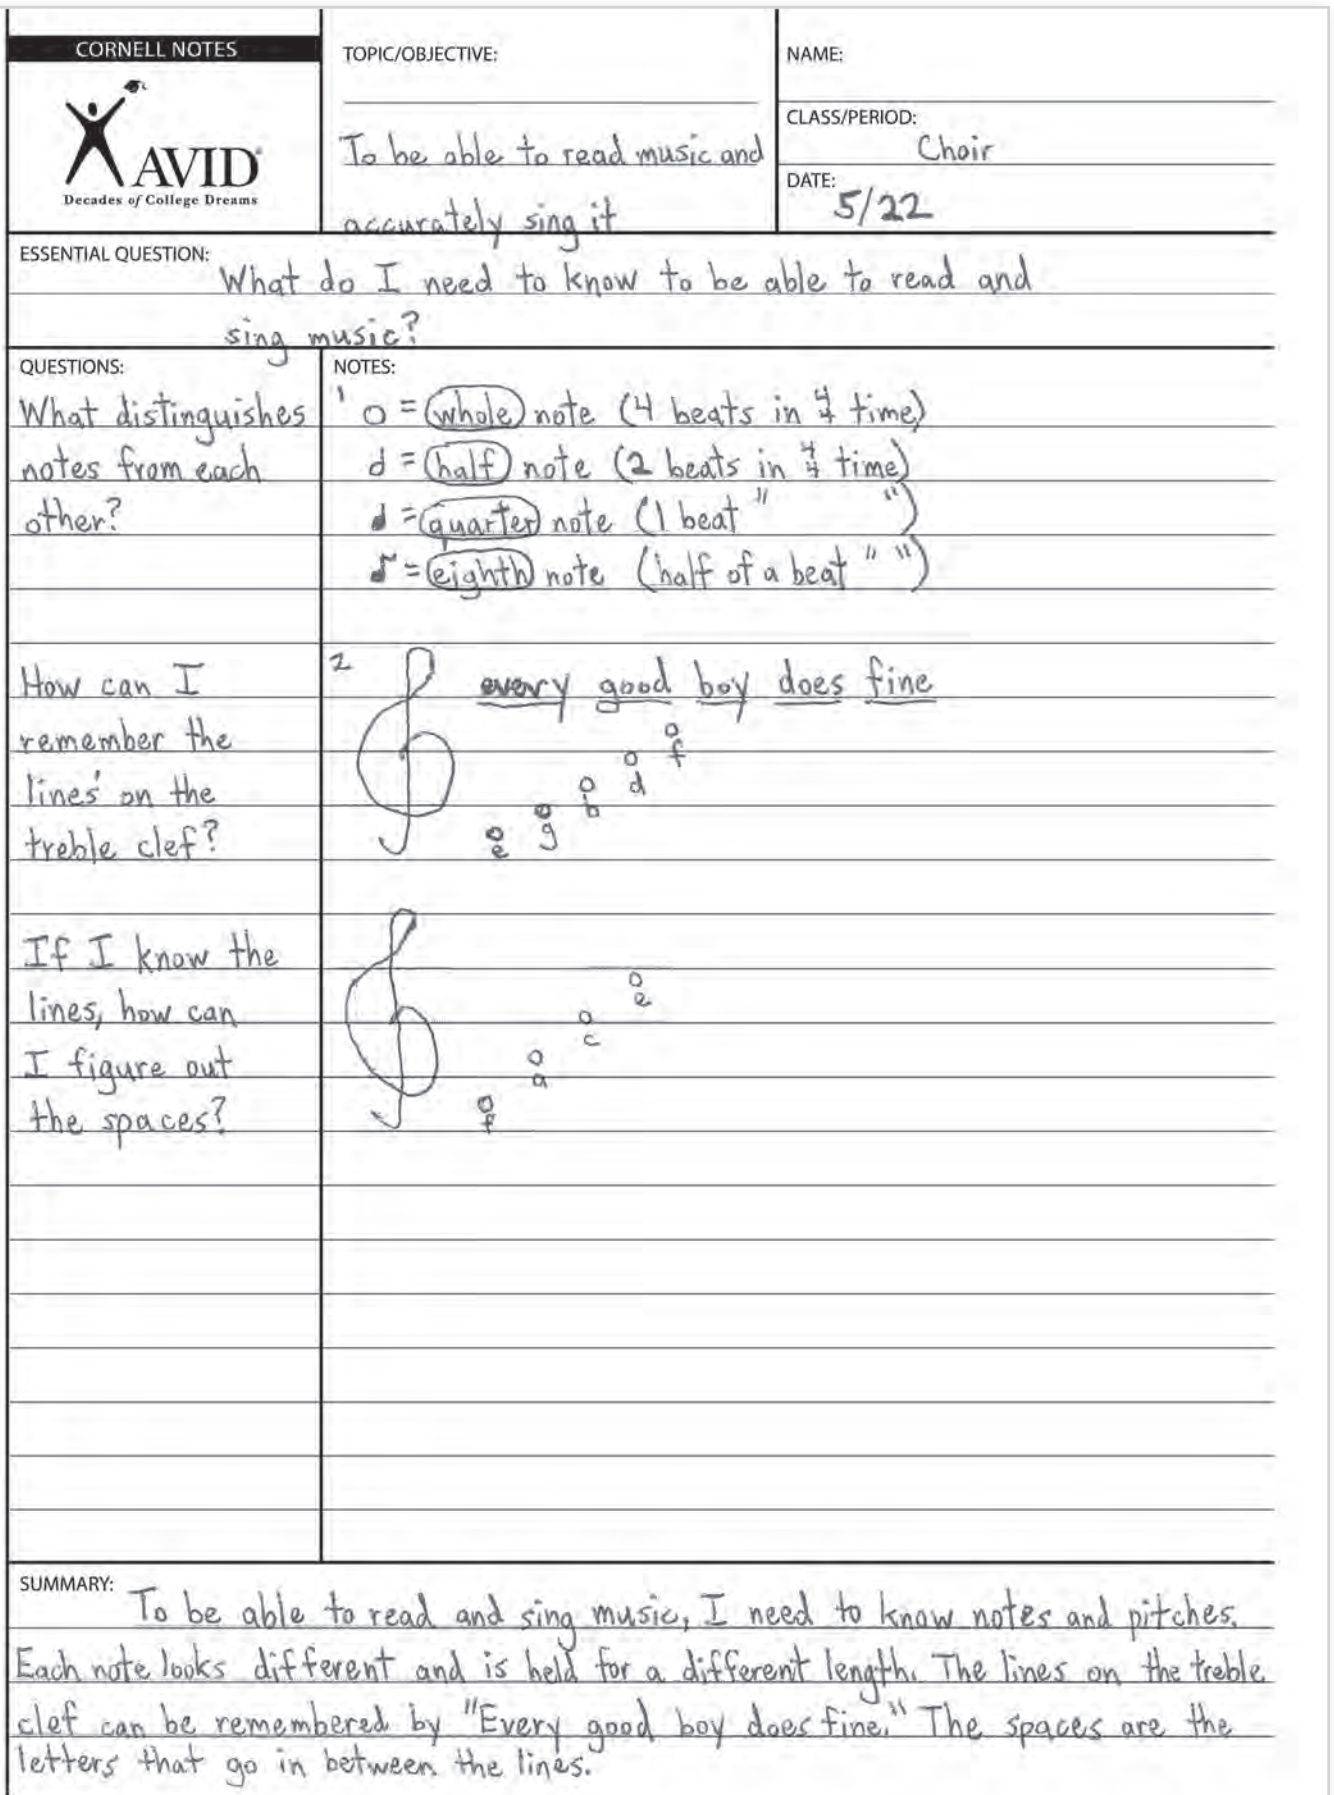 CORNELL NOTES
AVID
Decades of College Dreams
TOPIC/OBJECTIVE:
To be able to read music and
accurately sing it
NAME:
CLASS/PERIOD:
Choir
DATE:
5/22
ESSENTIAL QUESTION:
What do I need to know to be able to read and
sing music?
QUESTIONS:
What distinguishes
notes from each
other?
How can I
remember the
lines on the
treble clef?
If I know the
lines, how can
I figure out
the spaces?
NOTES:
1 o = whole note (4 beats in 4/4 time)
d = half note (2 beats in 4/4 time)
♩ = quarter note (1 beat " ")
♪ = eighth note (half of a beat " ")
2 every good boy does fine
e g b d f
f a c e
SUMMARY:
To be able to read and sing music, I need to know notes and pitches.
Each note looks different and is held for a different length. The lines on the treble
clef can be remembered by "Every good boy does fine." The spaces are the
letters that go in between the lines.